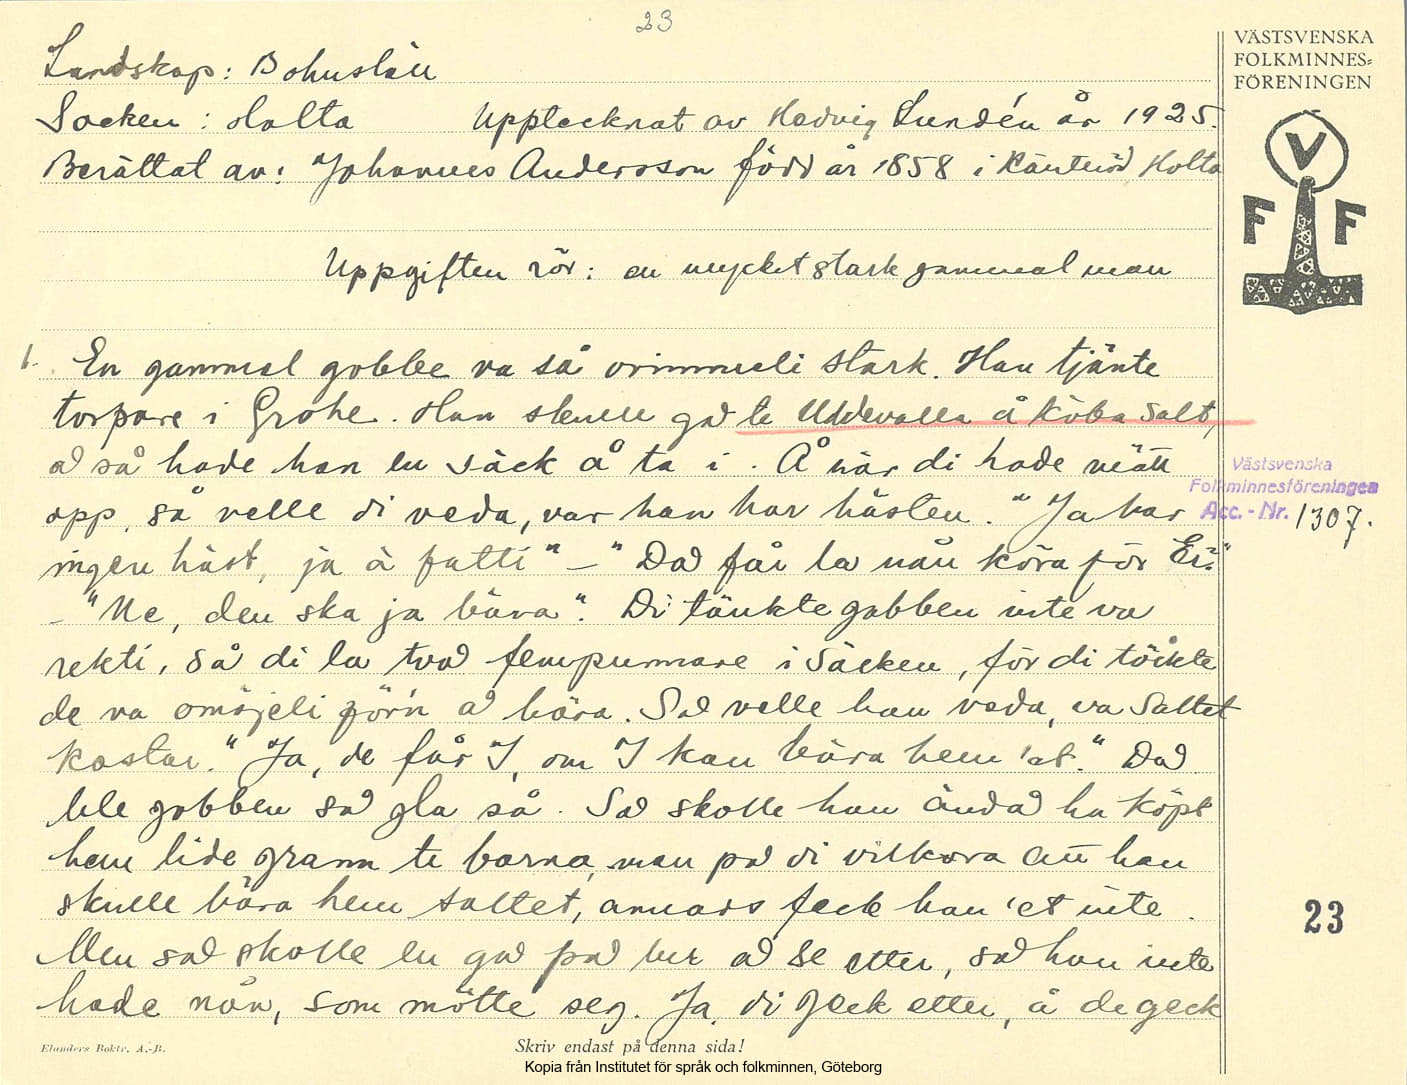 23
VÄSTSVENSKA
FOLKMINNES-
FÖRENINGEN
V
F F
Landskap: Bohuslän
Socken: Holta Upptecknat av Hedvig Lundén år 1925.
Berättat av: Johannes Andersson född år 1858 i Holta
Uppgiften rör: en mycket stark gammal man
1. En gammal gobbe va så orimmeli stark. Han tjänte
torpare i Grohe. Han skulle gå te Uddevalla å köba salt,
å så hade han en säck å ta i. Å när di hade mätt
opp, så velle di veda, var han har hästen. "Ja har
ingen häst, ja ä fatti" – "Då får la nån köra för Er."
– "Ne, den ska ja bära". Di tänkte gobben inte va
rekti, så di la två fempunnare i säcken, för di töckte
de va omöjeli för'n å bära. Så velle han veda, va saltet
kostar. "Ja, de får I, om I kan bära hem 'at." Då
ble gobben så gla så. Så skolle han ändå ha köpt
hem lide grann te barna, men på di vilkora att han
skulle bära hem saltet, annars feck han 'et inte.
Men så skolle en gå på lur å se etter, så han inte
hade nån, som mötte seg. Ja, di geck etter, å de geck
Västsvenska
Folkminnesföreningen
Acc.-Nr. 1307.
23
Elanders Boktr. A.-B.
Skriv endast på denna sida!
Kopia från Institutet för språk och folkminnen, Göteborg